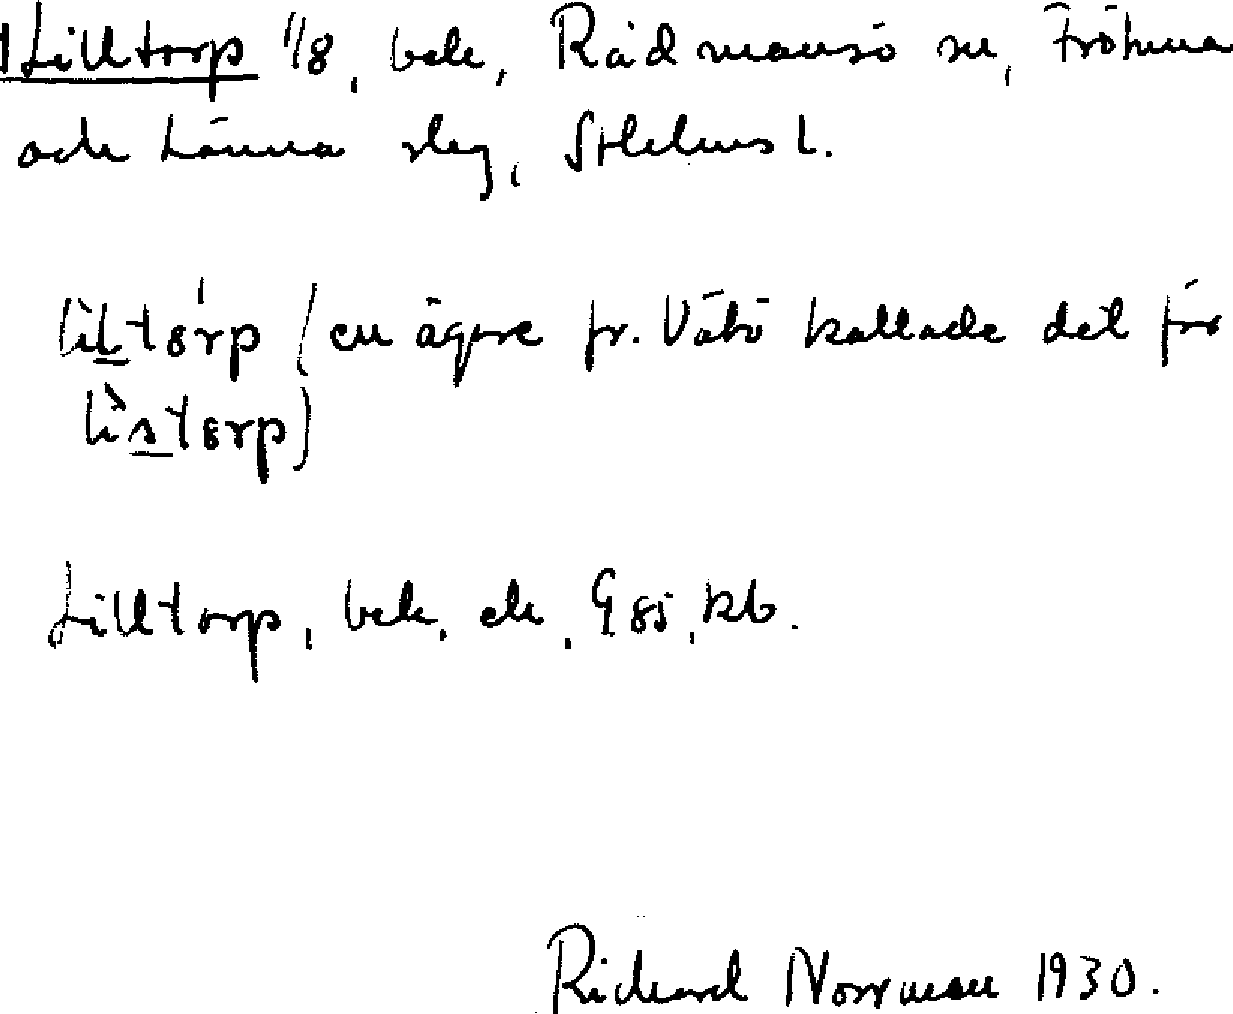 Lilltorp 1/8, bek, Rådmansö sn, Frötuna
och Länna slg, Sthlms l.
liltörp (en ägare fr. Vätö kallade det för
listörp)
Lilltorp, bek, ek, G 85, kb.
Richard Norrman 1930.